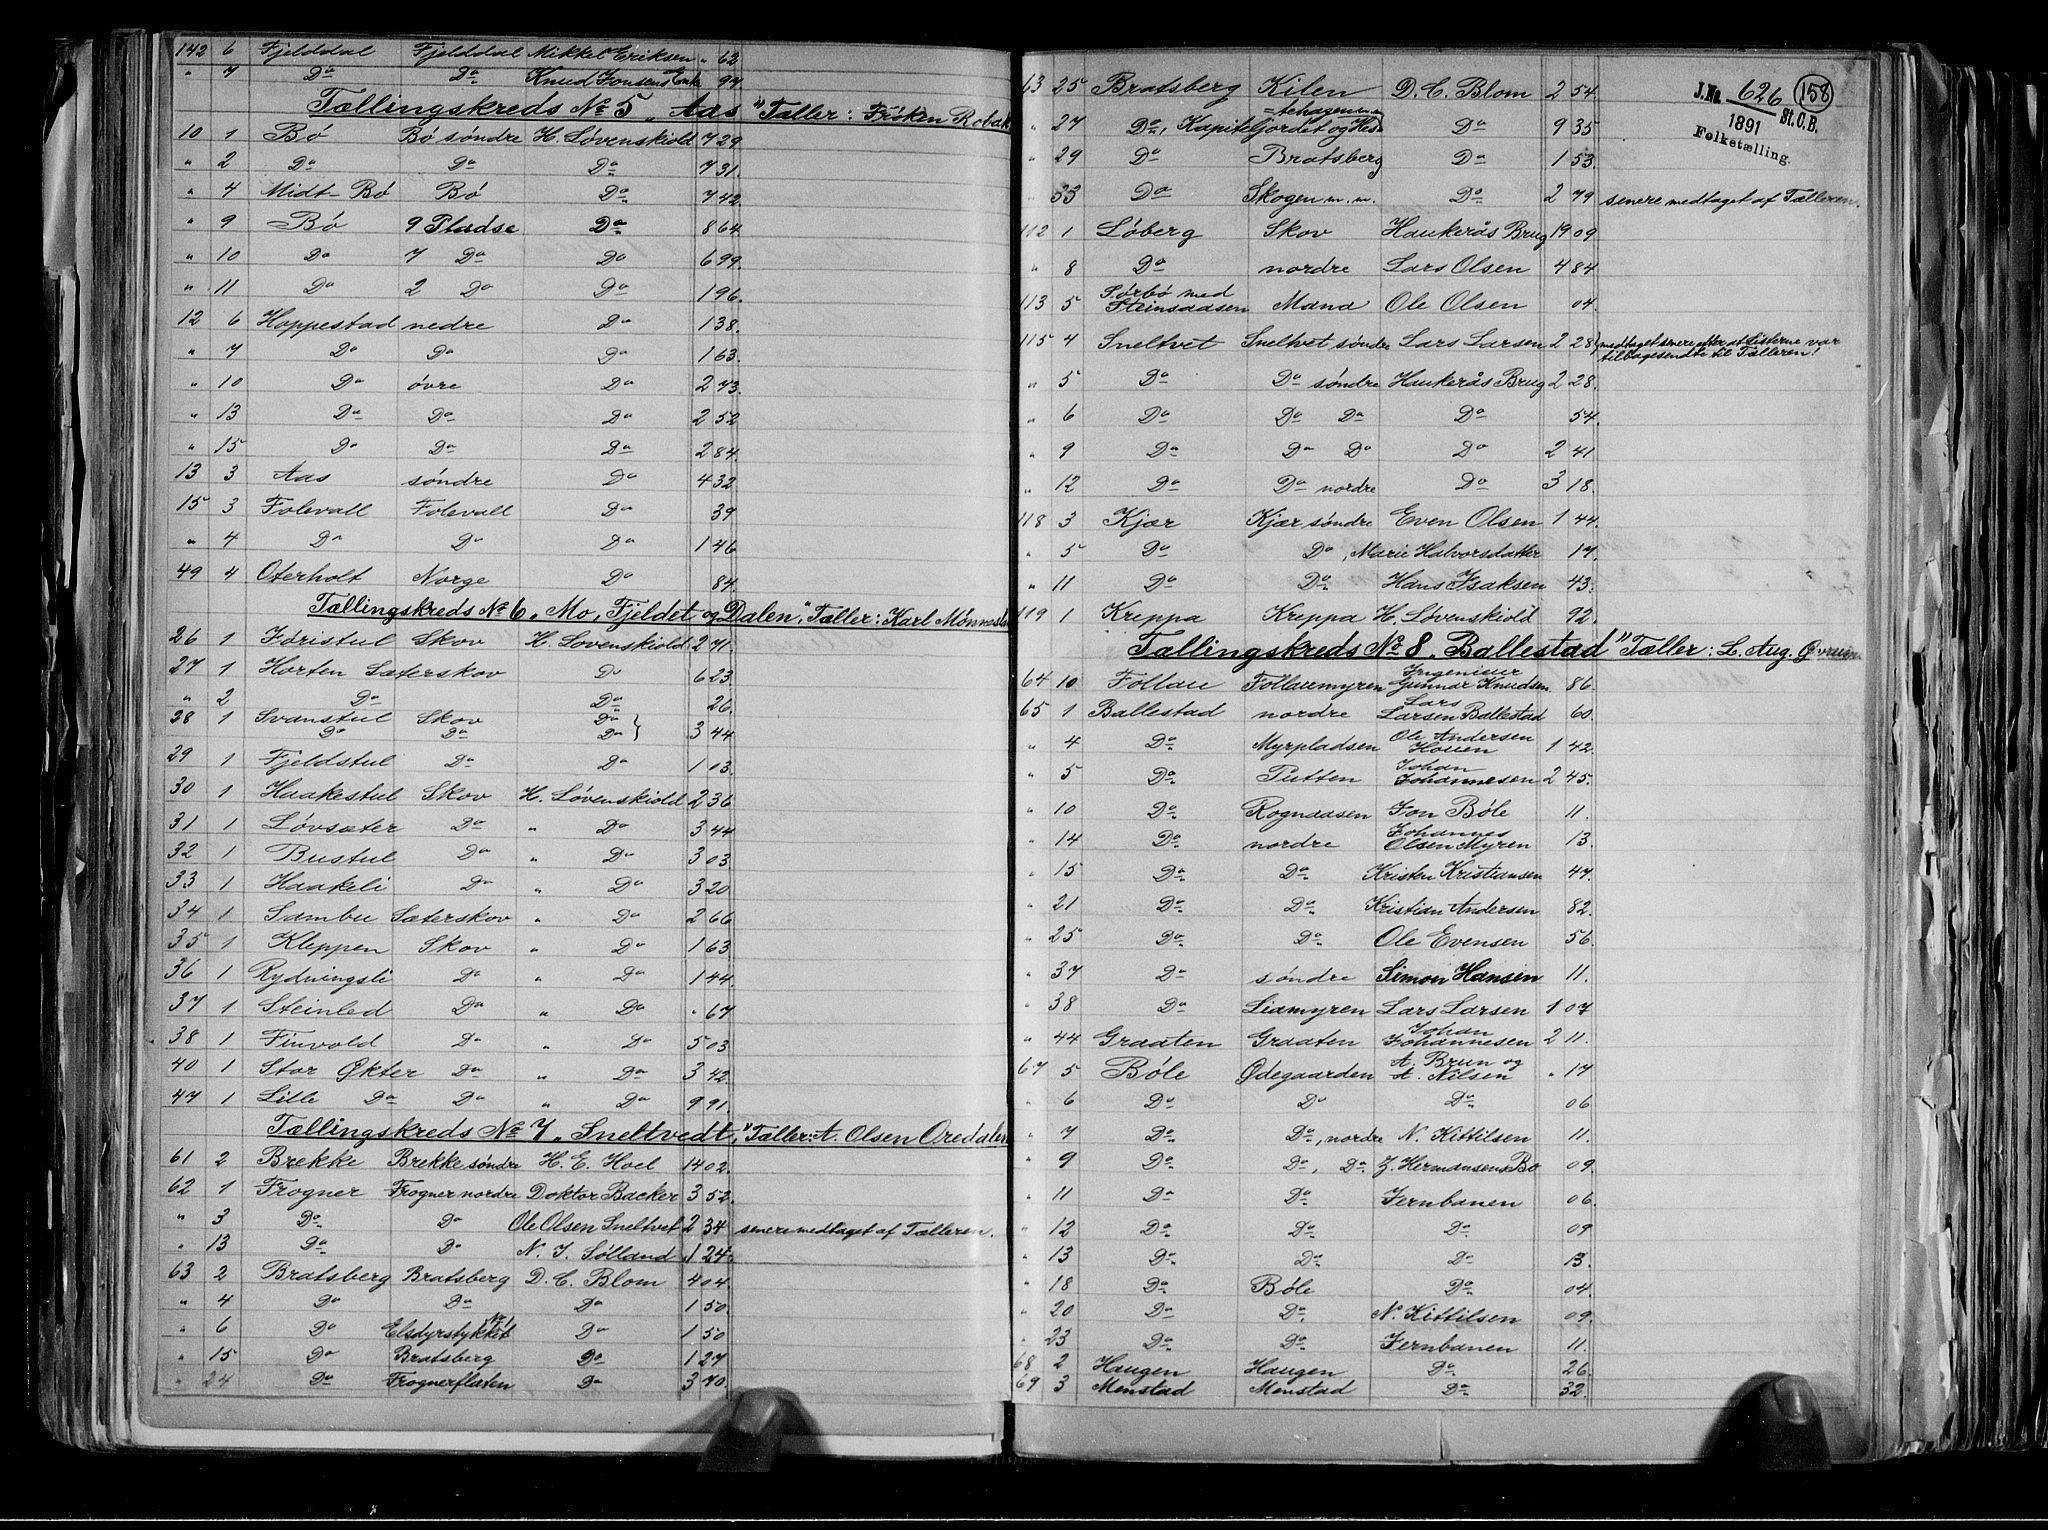 142 6 Fjelddal Fjelddal Mikkel Eriksen " 62
" 7 Do Do Knud Jonsens Enke 97
Tællingskreds No 5 „Aas" Tæller: Frøken Robak
10 1 Bø Bø søndre H. Løvenskiold 7 29
" 2 Do Do Do 7 31.
" 4 Midt-Bø Bø Do 7 42.
" 9 Bø 9 Pladse Do 8 64
" 10 Do 7 Do Do 6 99.
" 11 Do 2 Do Do 1 96.
12 6 Hoppestad nedre Do 1 38.
" 7 Do Do Do 1 63.
" 10 Do øvre Do 2 73.
" 13 Do Do Do 2 52
" 15 Do Do Do 2 84.
13 3 Aas søndre Do 4 32
15 3 Folevall Folevall Do 39
" 4 Do Do Do 1 46
49 4 Oterholt Norge Do 84.
Tællingskreds No 6 „Mo, Fjeldet og Dalen," Tæller: Karl
26 1 Føristul Skov H. Løvenskiold 2 71.
27 1 Horten Sæterskov Do 6 23.
" 2 Do Do 26.
28 1 Svanstul Skov Do
Do Do Do } 3 44
29 1 Fjeldstul Do Do 1 03.
30 1 Haakestul Skov H. Løvenskiold 2 36
31 1 Løvsæter Do " Do 3 44
32 1 Bustul Do " Do 3 03.
33 1 Haakeli Do " Do 3 20
34 1 Sambu Sæterskov " Do 2 66
35 1 Kleppen Skov " Do 1 63.
36 1 Rydningsli Do " Do 1 44.
37 1 Steinled Do " Do " 67
38 1 Finvold Do " Do 5 03
40 1 Stor Økter Do " Do 3 42.
47 1 Lille Do Do " Do 9 91.
Tællingskreds No 7 „Sneltvedt," Tæller: A. Olsen Oredalen
61 2 Brekke Brekke søndre H. E. Hoel 14 02.
62 1 Frogner Frogner nordre Doktor Backer 3 52.
" 3 Do Do Ole Olsen Sneltvet 2 34 senere medtaget af Tælleren.
" 13 Do Do N. J. Sølland 1 24.
63 2 Bratsberg Bratsberg D. C. Blom 4 04.
" 4 Do Do Do 1 50.
" 6 Do Elsdyrstykket Do 1 50
" 15 Do Bratsberg Do 1 27
" 24 Do Frognerflaten Do 3 70.
J. No. 626 158
1891 St.C.B.
Folketælling.
63 25 Bratsberg Kilen D. C. Blom 2 54.
" 27 Do, Do 9 35
" 29 Do Bratsberg Do 1 53.
" 33 Do Skogen m. m. Do 2 79 senere medtaget af Tælleren.
112 1 Løberg Skov Haukerås Brug 19 09
" 8 Do nordre Lars Olsen 4 84
113 5 Sørbø med Steinsaasen Mana Ole Olsen 04.
115 4 Sneltvet Sneltvet søndre Lars Larsen 2 28, medtaget senere efter at Listerne var
tilbagesendte til Tælleren!
" 5 Do Do søndre Haukerås Brug 2 28.
" 6 Do Do Do Do 54.
" 9 Do Do Do Do 2 41
" 12 Do Do nordre Do 3 18.
118 3 Kjær Kjær søndre Even Olsen 1 44.
" 5 Do Do, Marie Halvorsdatter 17.
" 11 Do Do Hans Isaksen 43.
119 1 Kreppa Kreppa H. Løvenskiold 92.
Tællingskreds No 8 „Ballestad" Tæller: L. Aug.
64 10 Follau Follaumyren Ingenieur Gunnar Knudsen. 86.
65 1 Ballestad nordre Lars Larsen Ballestad 60.
" 4 Do Myrpladsen Ole Andersen Houen 1 42.
" 5 Do Putten Johan Johannesen 2 45.
" 10 Do Rognaasen Jon Bøle 11.
" 14 Do nordre Johannes Olsen Myren 13.
" 15 Do Do Kristen Kristiansen 47.
" 21 Do Do Kristian Andersen 82.
" 25 Do Do Ole Evensen 56.
" 37 Do søndre Simon Hansen 11.
" 38 Do Liamyren Lars Larsen 1 07
" 44 Graaten Graaten Johan Johannesen 2 11.
67 5 Bøle Ødegaarden A. Brun og A. Nilsen " 17
" 6 Do Do Do 06
" 7 Do Do, nordre N. Kittilsen 11.
" 9 Do Do, Do Z. Hermansens Bo 09.
" 11 Do Do Jernbanen 06.
" 12 Do Do Do 09
" 13 Do Do Do 13.
" 18 Do Bøle Do 04.
" 20 Do Do N. Kittilsen 09.
" 23 Do Do Jernbanen 11.
68 2 Haugen Haugen Do 26
69 3 Menstad Menstad Do 32.